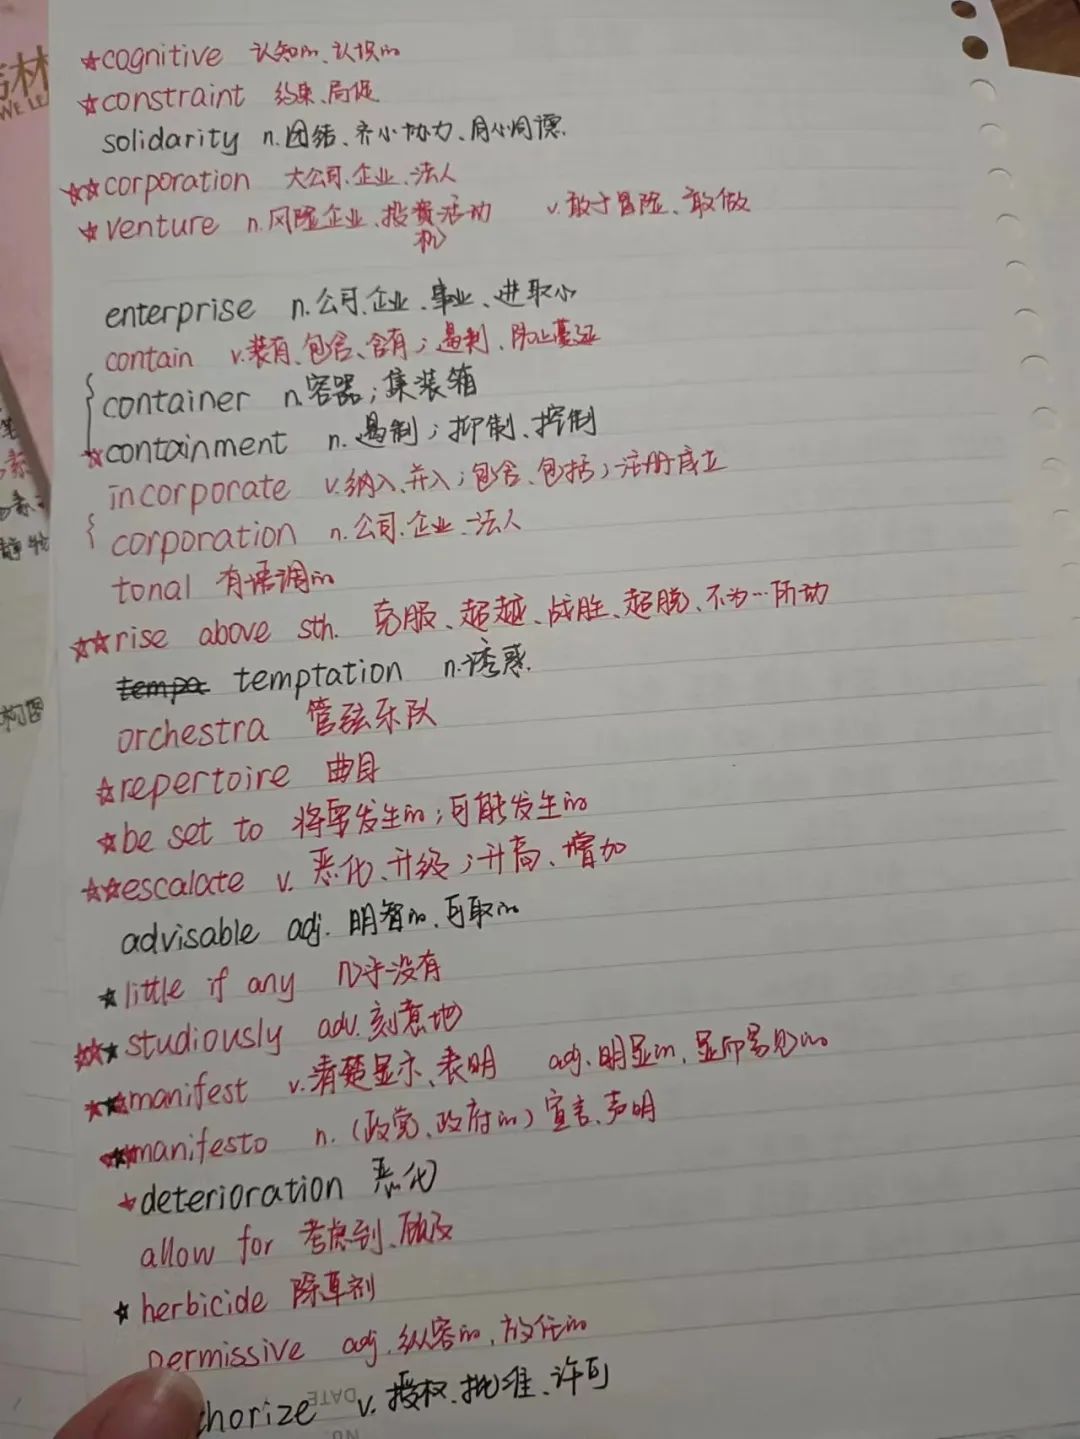 ☆cognitive 认知的、认识的
☆constraint 约束、局促
solidarity n.团结、齐心协力、同心同德.
☆☆corporation 大公司、企业、法人
☆venture n.风险企业、投资活动 v.敢于冒险、敢做
机
enterprise n.公司、企业、事业、进取心
contain v.装有、包含、含有;遏制、防止蔓延
container n.容器;集装箱
☆containment n.遏制;抑制、控制
incorporate v.纳入、并入;包含、包括;注册成立
corporation n.公司、企业、法人
tonal 有语调的
☆☆rise above sth. 克服、超越、战胜、超脱、不为…所动
temptation n.诱惑.
orchestra 管弦乐队
☆repertoire 曲目
☆be set to 将要发生的;可能发生的
☆☆escalate v.恶化、升级;升高、增加
advisable adj.明智的、可取的
☆little if any 几乎没有
☆☆☆studiously adv.刻意地
☆☆☆manifest v.清楚显示、表明 adj.明显的、显而易见的
manifesto n.(政党、政府的)宣言、声明
☆deterioration 恶化
allow for 考虑到、顾及
☆herbicide 除草剂
permissive adj.纵容的、放任的
horize v.授权、批准、许可
DATE
NO.
构图
WE LEA
林